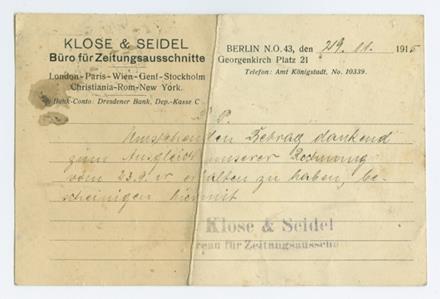 KLOSE & SEIDEL
Büro für Zeitungsausschnitte
London-Paris-Wien-Genf-Stockholm
Christiania-Rom-New York.
Bank-Conto: Dresdener Bank, Dep.-Kasse C
BERLIN N.O. 43, den 29. 11. 1915
Georgenkirch Platz 21
Telefon: Amt Königstadt, No. 10339.
P. P.
Umstehenden Betrag dankend
zum Ausgleich unserer Rechnung
vom 23.9. cr erhalten zu haben, be-
scheinigen hiermit
Klose & Seidel
Bureau für Zeitungsaussch